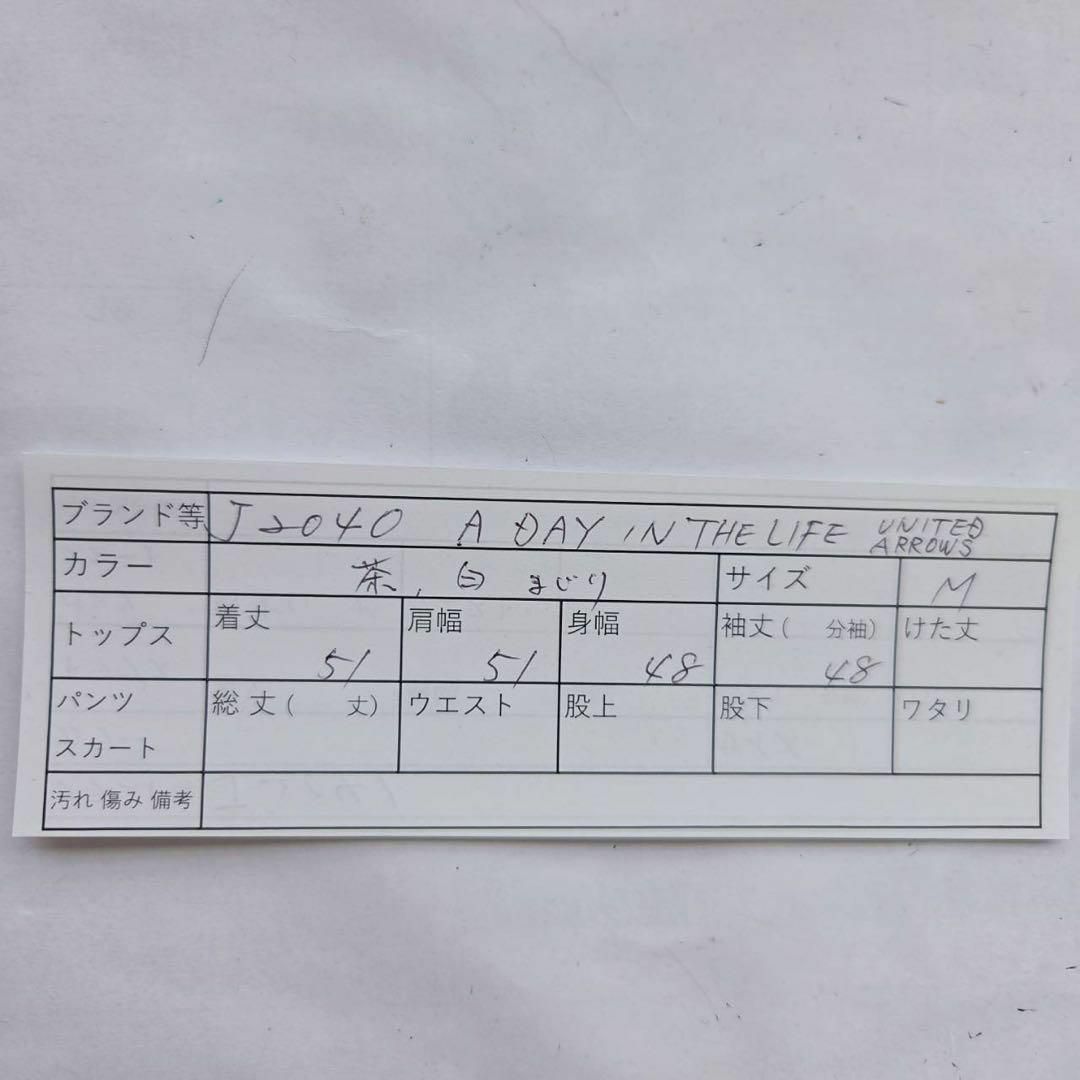 ブランド等 J2040 A DAY IN THE LIFE UNITED ARROWS
カラー 茶、白 まじり サイズ M
トップス 着丈 51 肩幅 51 身幅 48 袖丈( 分袖) 48 けた丈
パンツ スカート 総丈( 丈) ウエスト 股上 股下 ワタリ
汚れ 傷み 備考